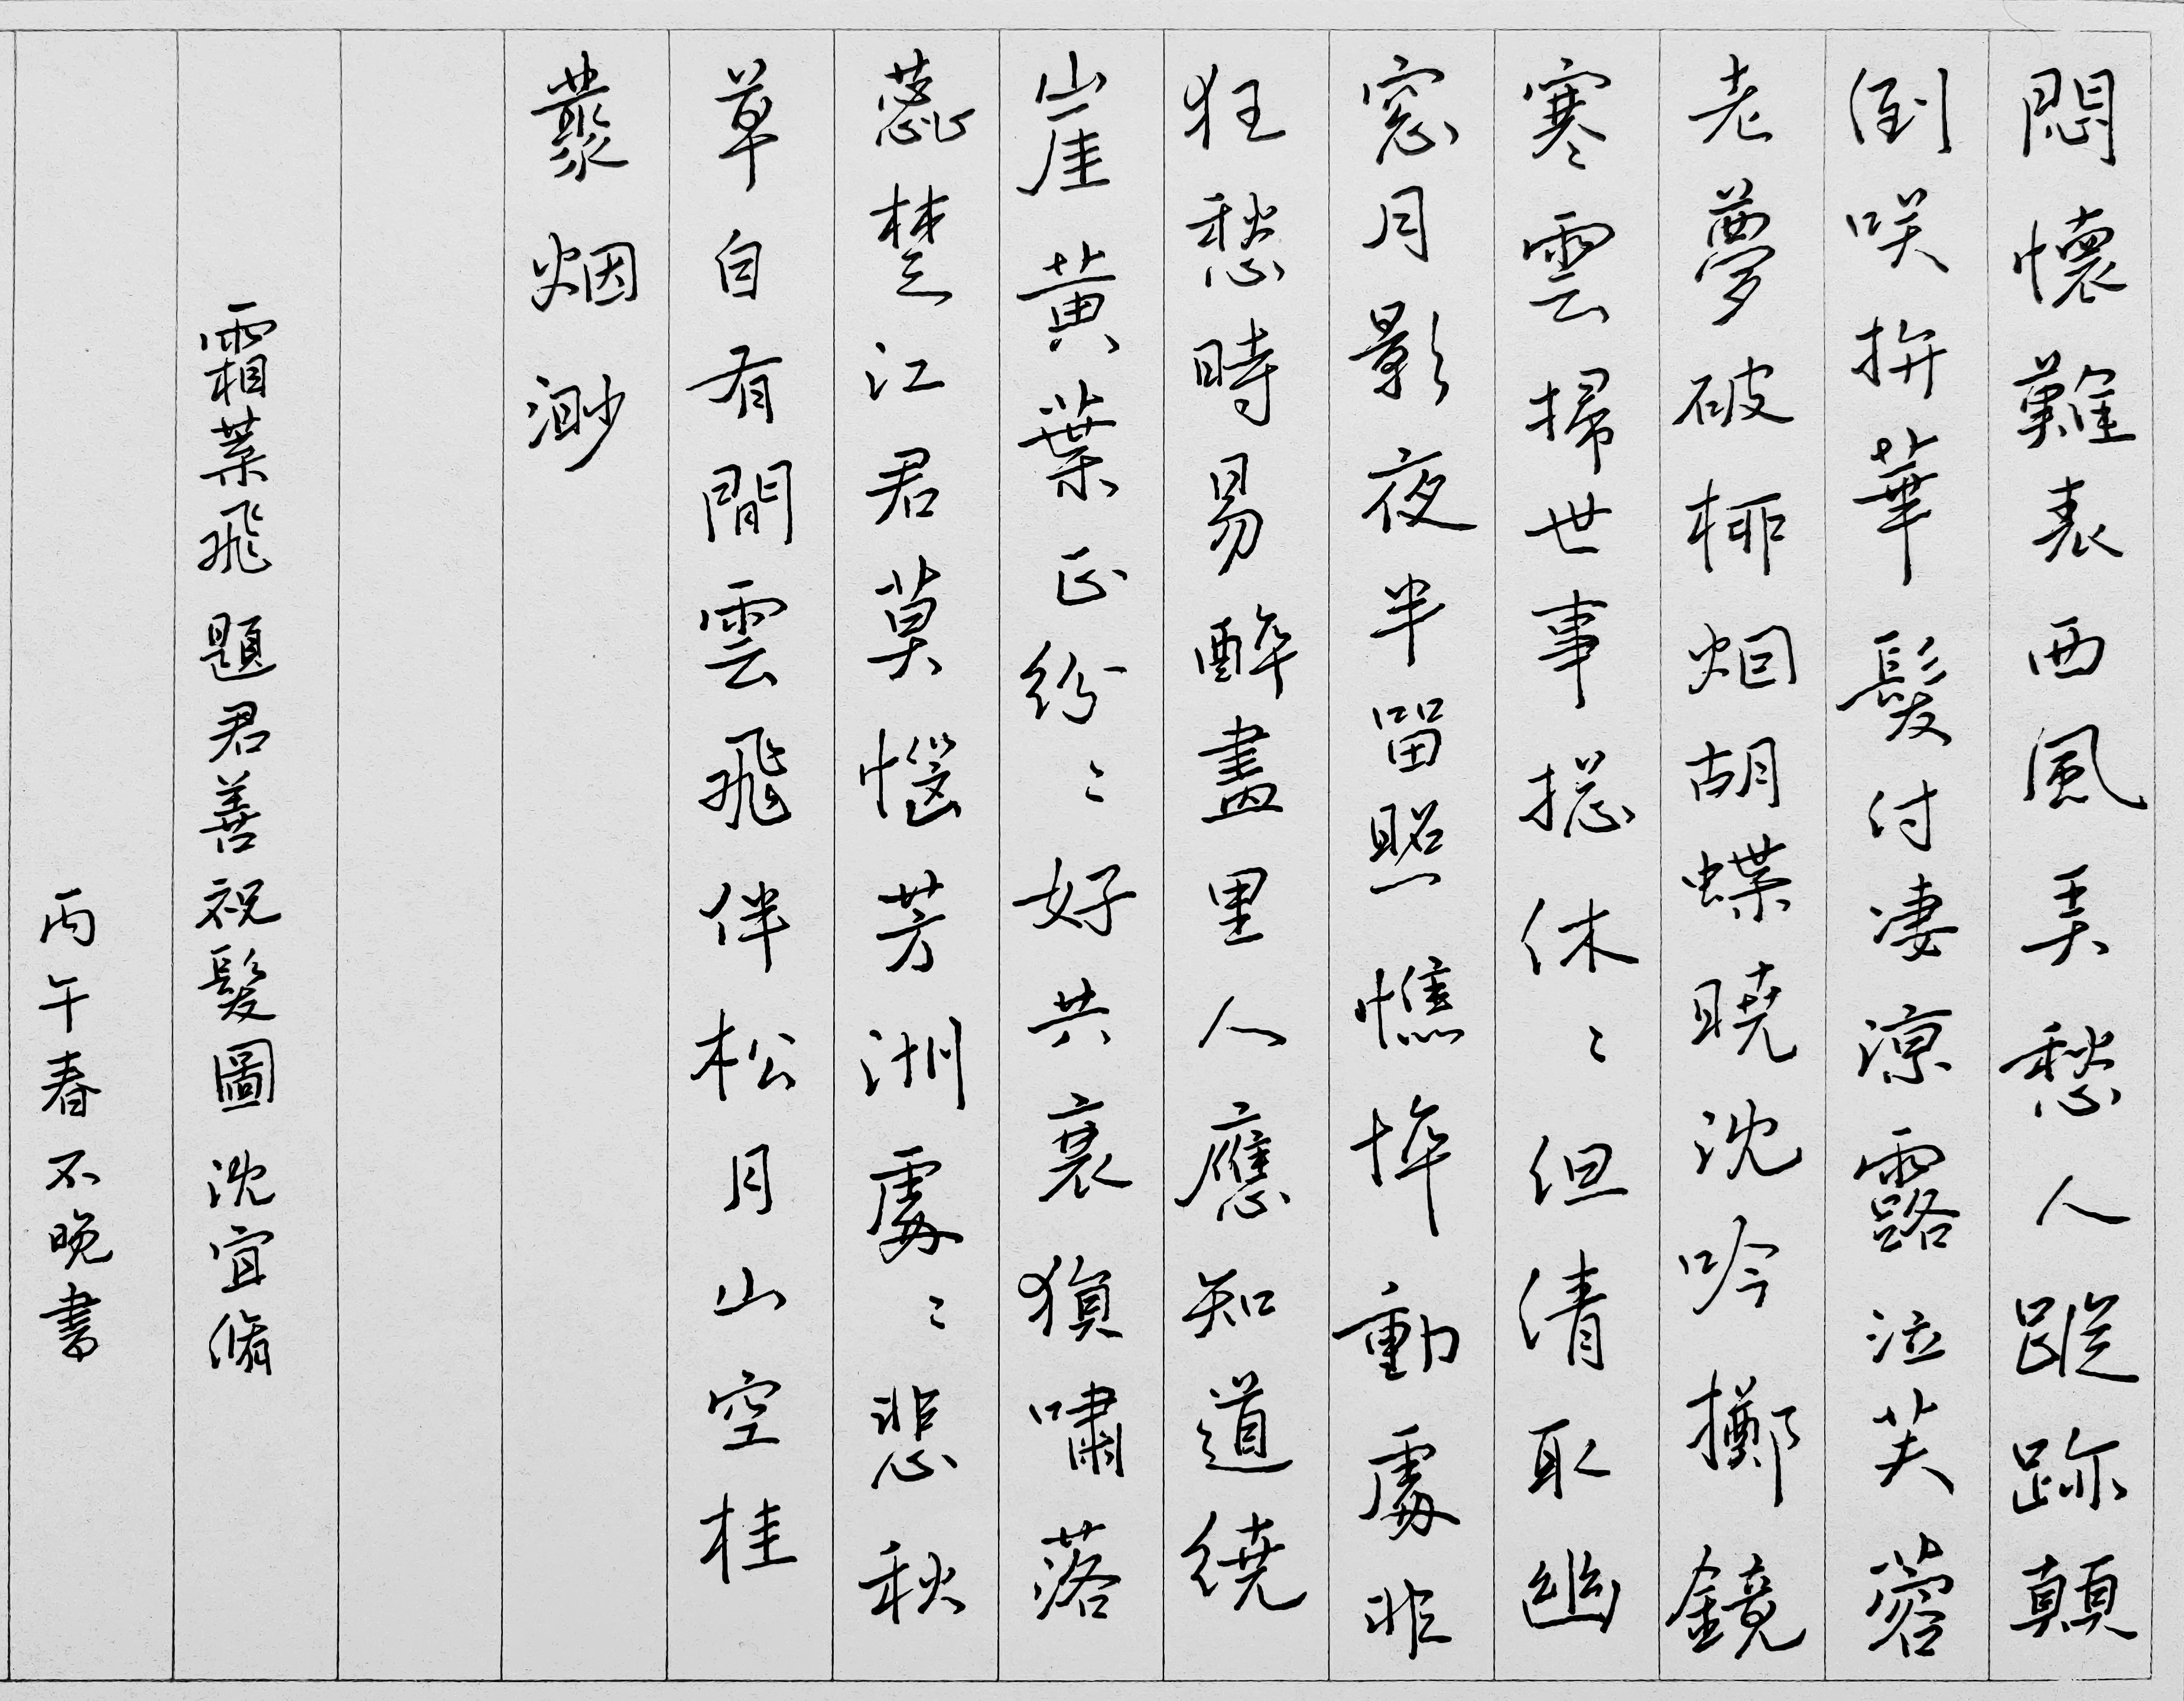 悶懷難表西風弄愁人蹤跡顛
倒咲拚華髮付凄涼露泣芙蓉
老夢破柳烟胡蝶曉沈吟擲鏡
寒雲掃世事摠休〻但清取幽
窓月影夜半留照憔悴動處非
狂愁時易醉畫里人應知道繞
崖黃葉正紛〻好共哀猿嘯落
蕊楚江君莫惱芳洲處〻悲秋
草自有閒雲飛伴松月山空桂
叢烟渺
霜葉飛 題君善祝髮圖 沈宜脩
丙午春不晚書